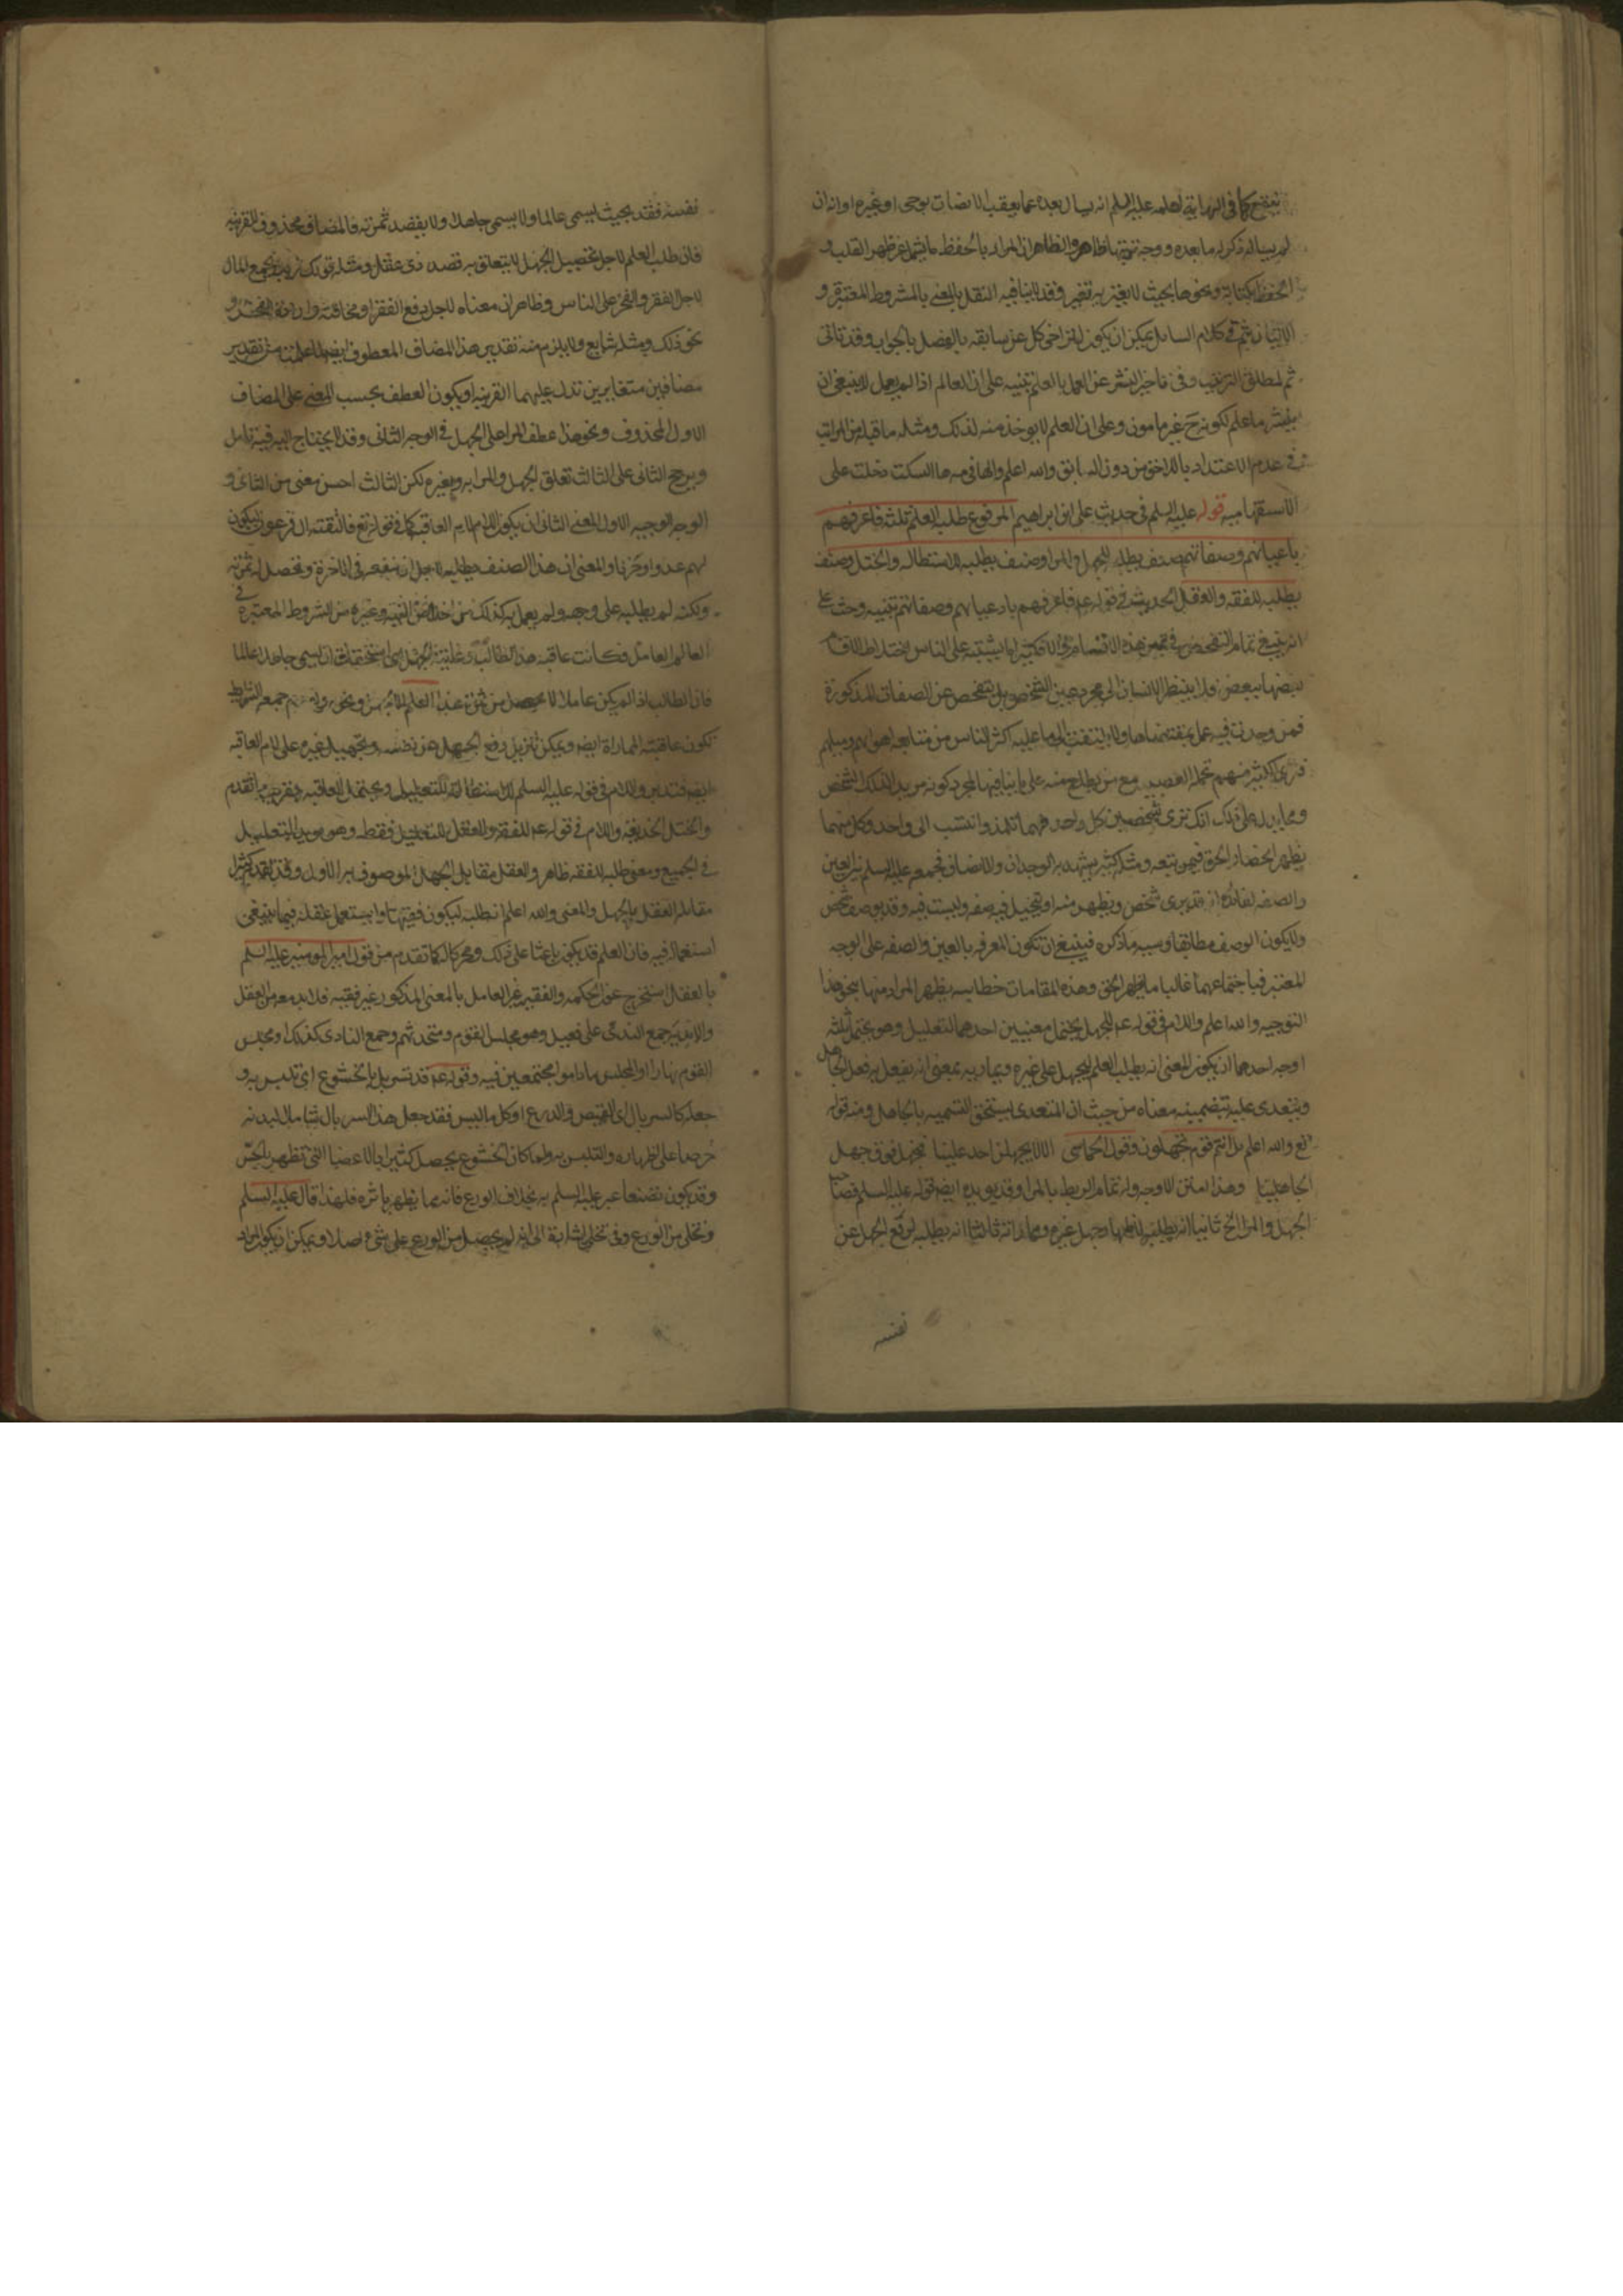 لعلمه عليه السلم انه يسال بعده عما يعقب الانصات بوحى او غيره او انه ان
لم يساله ذكر له ما بعده ووجه ظاهر والظاهر ان المراد بالحفظ ما يشمل عن ظهر القلب و
الحفظ بكتابة ونحوها بحيث لا يغير به تغير وقد لا ينافيه النقل بالمعنى بالشروط المعتبرة و
الاتيان بثم فى كلام السائل يمكن ان يكون لتراخى كل عن سابقه بالفصل بالجواب وقد تاتى
ثم لمطلق الترتيب وفى تاخير النشر عن العمل بالعلم تنبيه على ان العالم اذا لم يعمل لا ينبغى ان
ينشر ما علم لكونه ح غير مامون وعلى ان العلم لا يوخذ منه لذلك ومثله ما قبله من المراتب
فى عدم الاعتداد باللاحق من دون السابق والله اعلم والها فى مه ها السكت دخلت على
الاستفهاميه قوله عليه السلم فى حديث على ابن ابراهيم المرفوع طلبة العلم ثلثة فاعرفهم
باعيانهم وصفاتهم صنف يطلبه للجهل والمرا وصنف يطلبه للاستطالة والختل وصنف
يطلبه للفقه والعقل الحديث فى قوله عم فاعرفهم باعيانهم وصفاتهم تنبيه وحث على
انه ينبغى تمام التفحص فى تمييز هذه الاقسام فى الا كثيرا ما يشتبه على الناس اختلاط الاقسام
بعضها ببعض فلا ينظر الانسان الى مجرد عين الشخص بل يتفحص عن الصفات المذكورة
فمن وجدت فيه عمل بمقتضاها ولا يلتفت الى ما عليه اكثر الناس من متابعة اهوائهم وميلهم
فترى الكثير منهم تحمله العصبيه مع من يطلع منه على ما ينافيها لمجرد كونه مريدا لذلك الشخص
ومما يدل على ذلك انك ترى شخصين كل واحد منهما تلمذ وانتسب الى واحد وكل منهما
يظهر انحصار الحق فيمن تبعه ومثله كثير يشهد به الوجدان والانصاف فجمعه عليه السلم بين العين
والصفه لفائدة انه قد يرى شخص ويظهر منه او يتخيل فيه صفه وليست فيه وقد يوصف شخص
ولا يكون الوصف مطابقا وسببه ما ذكره فينبغى ان تكون المعرفه بالعين والصفه على الوجه
المعتبر فباجتماعهما غالبا ما يظهر الحق وهذه المقامات خطابيه يظهر المراد منها بنحو هذا
التوجيه والله اعلم واللام فى قوله عم للجهل يحتمل معنيين احدهما التعليل وهو يحتمل ثلثة
اوجه احدها ان يكون المعنى انه يطلب العلم ليجهل على غيره ويماريه بمعنى انه يفعل به فعل الجاهل
ويتعدى عليه بتضمينه معناه من حيث ان المتعدى يستحق التسميه بالجاهل ومنه قوله
تع والله اعلم بل انتم قوم تجهلون وقول الحماسى الا لا يجهلن احد علينا فنجهل فوق جهل
الجاهلينا وهذا امتن الاوجه وله تمام الربط بالمرا وقد يويده ايضا قوله عليه السلم فصاحب
الجهل والمرا الخ ثانيها انه يطلبه لاظهار جهل غيره ومماراته ثالثها انه يطلبه لرفع الجهل عن
نفسه
نفسه فقط بحيث يسمى عالما ولا يسمى جاهلا ولا يقصد ثمرته فالمضاف محذوف للقرينه
فان طلب العلم لاجل تحصيل الجهل لا يتعلق به قصد ذى عقل ومثله قولك زيد يجمع المال
لاجل الفقر والفخر على الناس وظاهر ان معناه لاجل دفع الفقر او مخافته وارادة الفخر و
نحو ذلك ومثله شايع ولا يلزم منه تقدير هذا المضاف المعطوف ايضا من تقدير
مضافين متغايرين تدل عليهما القرينه او يكون العطف بحسب المعنى على المضاف
الاول المحذوف ونحو هذا عطف المرا على الجهل فى الوجه الثانى وقد لا يحتاج اليه فيه تامل
ويرجح الثانى على الثالث تعلق الجهل والمرا به وبغيره لكن الثالث احسن معنى من الثانى و
الوجه الوجيه الاول المعنى الثانى ان يكون اللام لام العاقبه كما فى قوله تع فالتقطه ال فرعون ليكون
لهم عدوا وحزنا والمعنى ان هذا الصنف يطلبه لاجل ان ينفعه فى الاخرة وتحصل له ثمرته
ولكنه لم يطلبه على وجهه ولم يعمل به كذلك من اخلاص النيه وغيره من الشروط المعتبرة فى
العالم العامل فكانت عاقبة هذا الطالب وغايته الجهل اى استحقاق ان يسمى جاهلا لا عالما
فان الطالب اذا لم يكن عاملا لا يحصل من ثمرة هذا العلم
تكون عاقبته المماراة ايضا ويمكن تنزيل رفع الجهل عن نفسه وتجهيل غيره على لام العاقبه
ايضا فتدبر واللام فى قوله عليه السلم للاستطالة للتعليل ويحتمل العاقبه بقرينة ما تقدم
والختل الخديعه واللام فى قوله عم للفقه والعقل للتعليل فقط وهو مويد للتعليل
فى الجميع ومعنى طلبه للفقه ظاهر والعقل مقابل الجهل الموصوف به الاول وقد تقدم كثيرا
مقابلة العقل بالجهل والمعنى والله اعلم انه يطلبه ليكون فقيها وليستعمل عقله فيما ينبغى
استعماله فيه فان العلم قد يكون باعثا على ذلك ومحركا له كما تقدم من قول امير المومنين عليه السلم
بالعقل استخرج غور الحكمه والفقيه غير العامل بالمعنى المذكور غير فقيه فلا بد معه من العقل
والانديه جمع الندى على فعيل وهو مجلس القوم ومتحدثهم وجمع النادى كذلك او مجلس
القوم نهارا او المجلس ما داموا مجتمعين فيه وقوله عم قد تسربل بالخشوع اى تلبس به و
جعله كالسربال اى القميص والدرع او كل ما لبس فقد جعل هذا السربال شاملا لبدنه
حرصا على اظهاره والتلبس به ولما كان الخشوع يحصل كثيرا بالاعضا التى تظهر بالحس
وقد يكون تصنعا عبر عليه السلم به بخلاف الورع فانه مما يظهر باثره فلهذا قال عليه السلم
وتخلى من الورع وفى تخلى اشارة الى انه لم يحصل من الورع على شى اصلا ويمكن ان يكون المراد